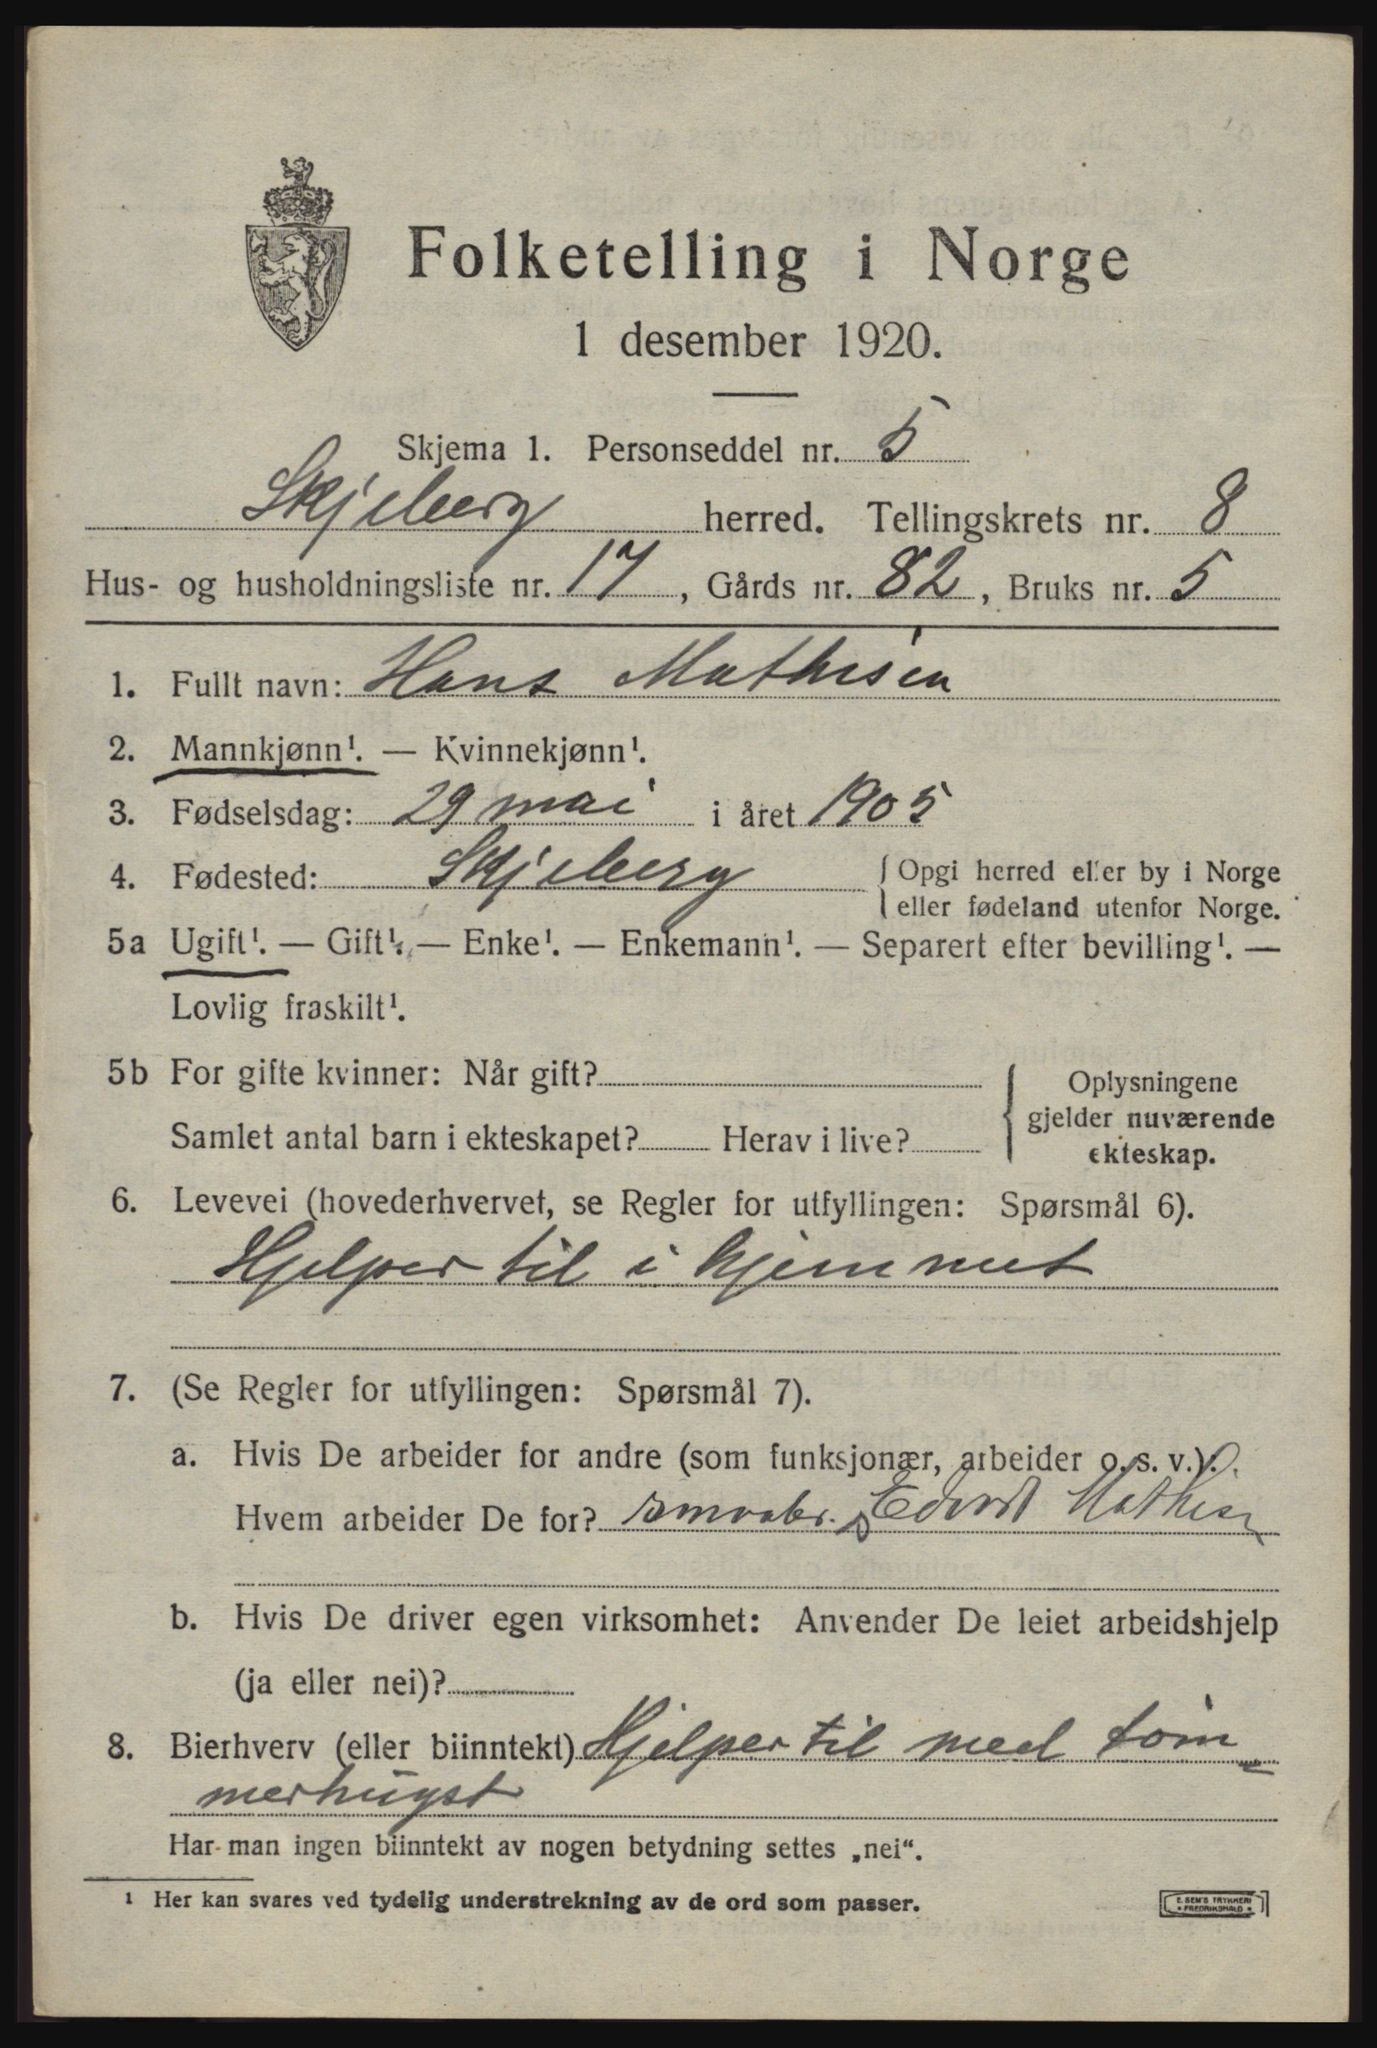 Folketelling i Norge
1 desember 1920.
Skjema 1. Personseddel nr. 5
Skjeberg herred. Tellingskrets nr. 8
Hus- og husholdningsliste nr. 17, Gårds nr. 82, Bruks nr. 5
1. Fullt navn: Hans Mathisen
2. Mannkjønn¹. — Kvinnekjønn¹.
3. Fødselsdag: 29 mai i året 1905
4. Fødested: Skjeberg { Opgi herred eller by i Norge
eller fødeland utenfor Norge.
5a Ugift¹. — Gift¹. — Enke¹. — Enkemann¹. — Separert efter bevilling¹. —
Lovlig fraskilt¹.
5b For gifte kvinner: Når gift?
Samlet antal barn i ekteskapet? Herav i live?
{ Oplysningene
gjelder nuværende
ekteskap.
6. Levevei (hovederhvervet, se Regler for utfyllingen: Spørsmål 6).
Hjelper til i hjemmet
7. (Se Regler for utfyllingen: Spørsmål 7).
a. Hvis De arbeider for andre (som funksjonær, arbeider o. s. v.).
Hvem arbeider De for? smaabr. Edvard Mathisen
b. Hvis De driver egen virksomhet: Anvender De leiet arbeidshjelp
(ja eller nei)?
8. Bierhverv (eller biinntekt) Hjelper til med töm
merhugst
Har man ingen biinntekt av nogen betydning settes „nei“.
¹ Her kan svares ved tydelig understrekning av de ord som passer.
E. SEM'S TRYKKERI
• FREDRIKSHALD •